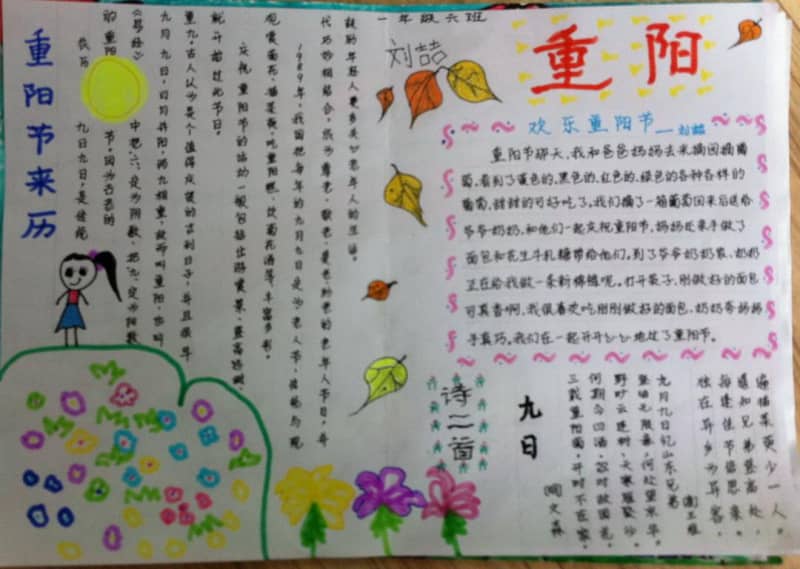 重阳节来历
农历九月九日,是传统
的重阳节。因为古老的
《易经》中把六定为阴数,把九定为阳数,
九月九日,日月并阳,两九相重,故而叫重阳,也叫
重九,古人认为是个值得庆贺的吉利日子,并且很早
就开始过此节日。
庆祝重阳节的活动一般包括出游赏景、登高远眺、
观赏菊花、插茱萸、吃重阳糕、饮菊花酒等,丰富多彩。
1989年,我国把每年的九月九日定为老人节,传统与现
代巧妙相结合,成为尊老、敬老、爱老、助老的老年人节日,并
鼓励年轻人更多关心老年人的生活。
一年级六班
刘喆
重阳
欢乐重阳节——刘喆
重阳节那天,我和爸爸妈妈去采摘园摘葡
萄,看到了黄色的、黑色的、红色的、绿色的各种各样的
葡萄,甜甜的可好吃了,我们摘了一箱葡萄回来后送给
爷爷奶奶,和他们一起庆祝重阳节,妈妈还亲手做了
面包和花生牛轧糖带给他们。到了爷爷奶奶家,奶奶
正在给我做一条新棉裤呢。打开袋子,刚做好的面包
可真香啊,我很喜欢吃刚刚做好的面包,奶奶夸妈妈
手真巧。我们在一起开开心心地过了重阳节。
诗二首
九月九日忆山东兄弟
王维
独在异乡为异客,
每逢佳节倍思亲。
遥知兄弟登高处,
遍插茱萸少一人。
九日
登临无限意,何处望京华。
野旷云连树,天寒雁聚沙。
三载重阳菊,开时不在家。
文森